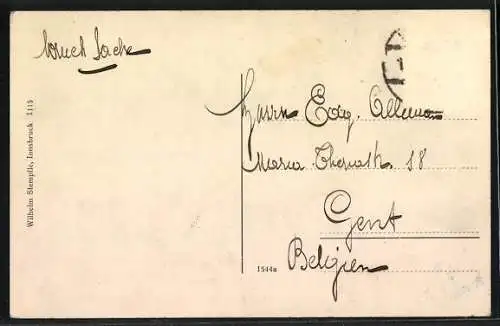 Druck Sache
Wilhelm Stempfle, Innsbruck 1115
Herrn Edg.
Maria 18
Gent
Belgien
1544a